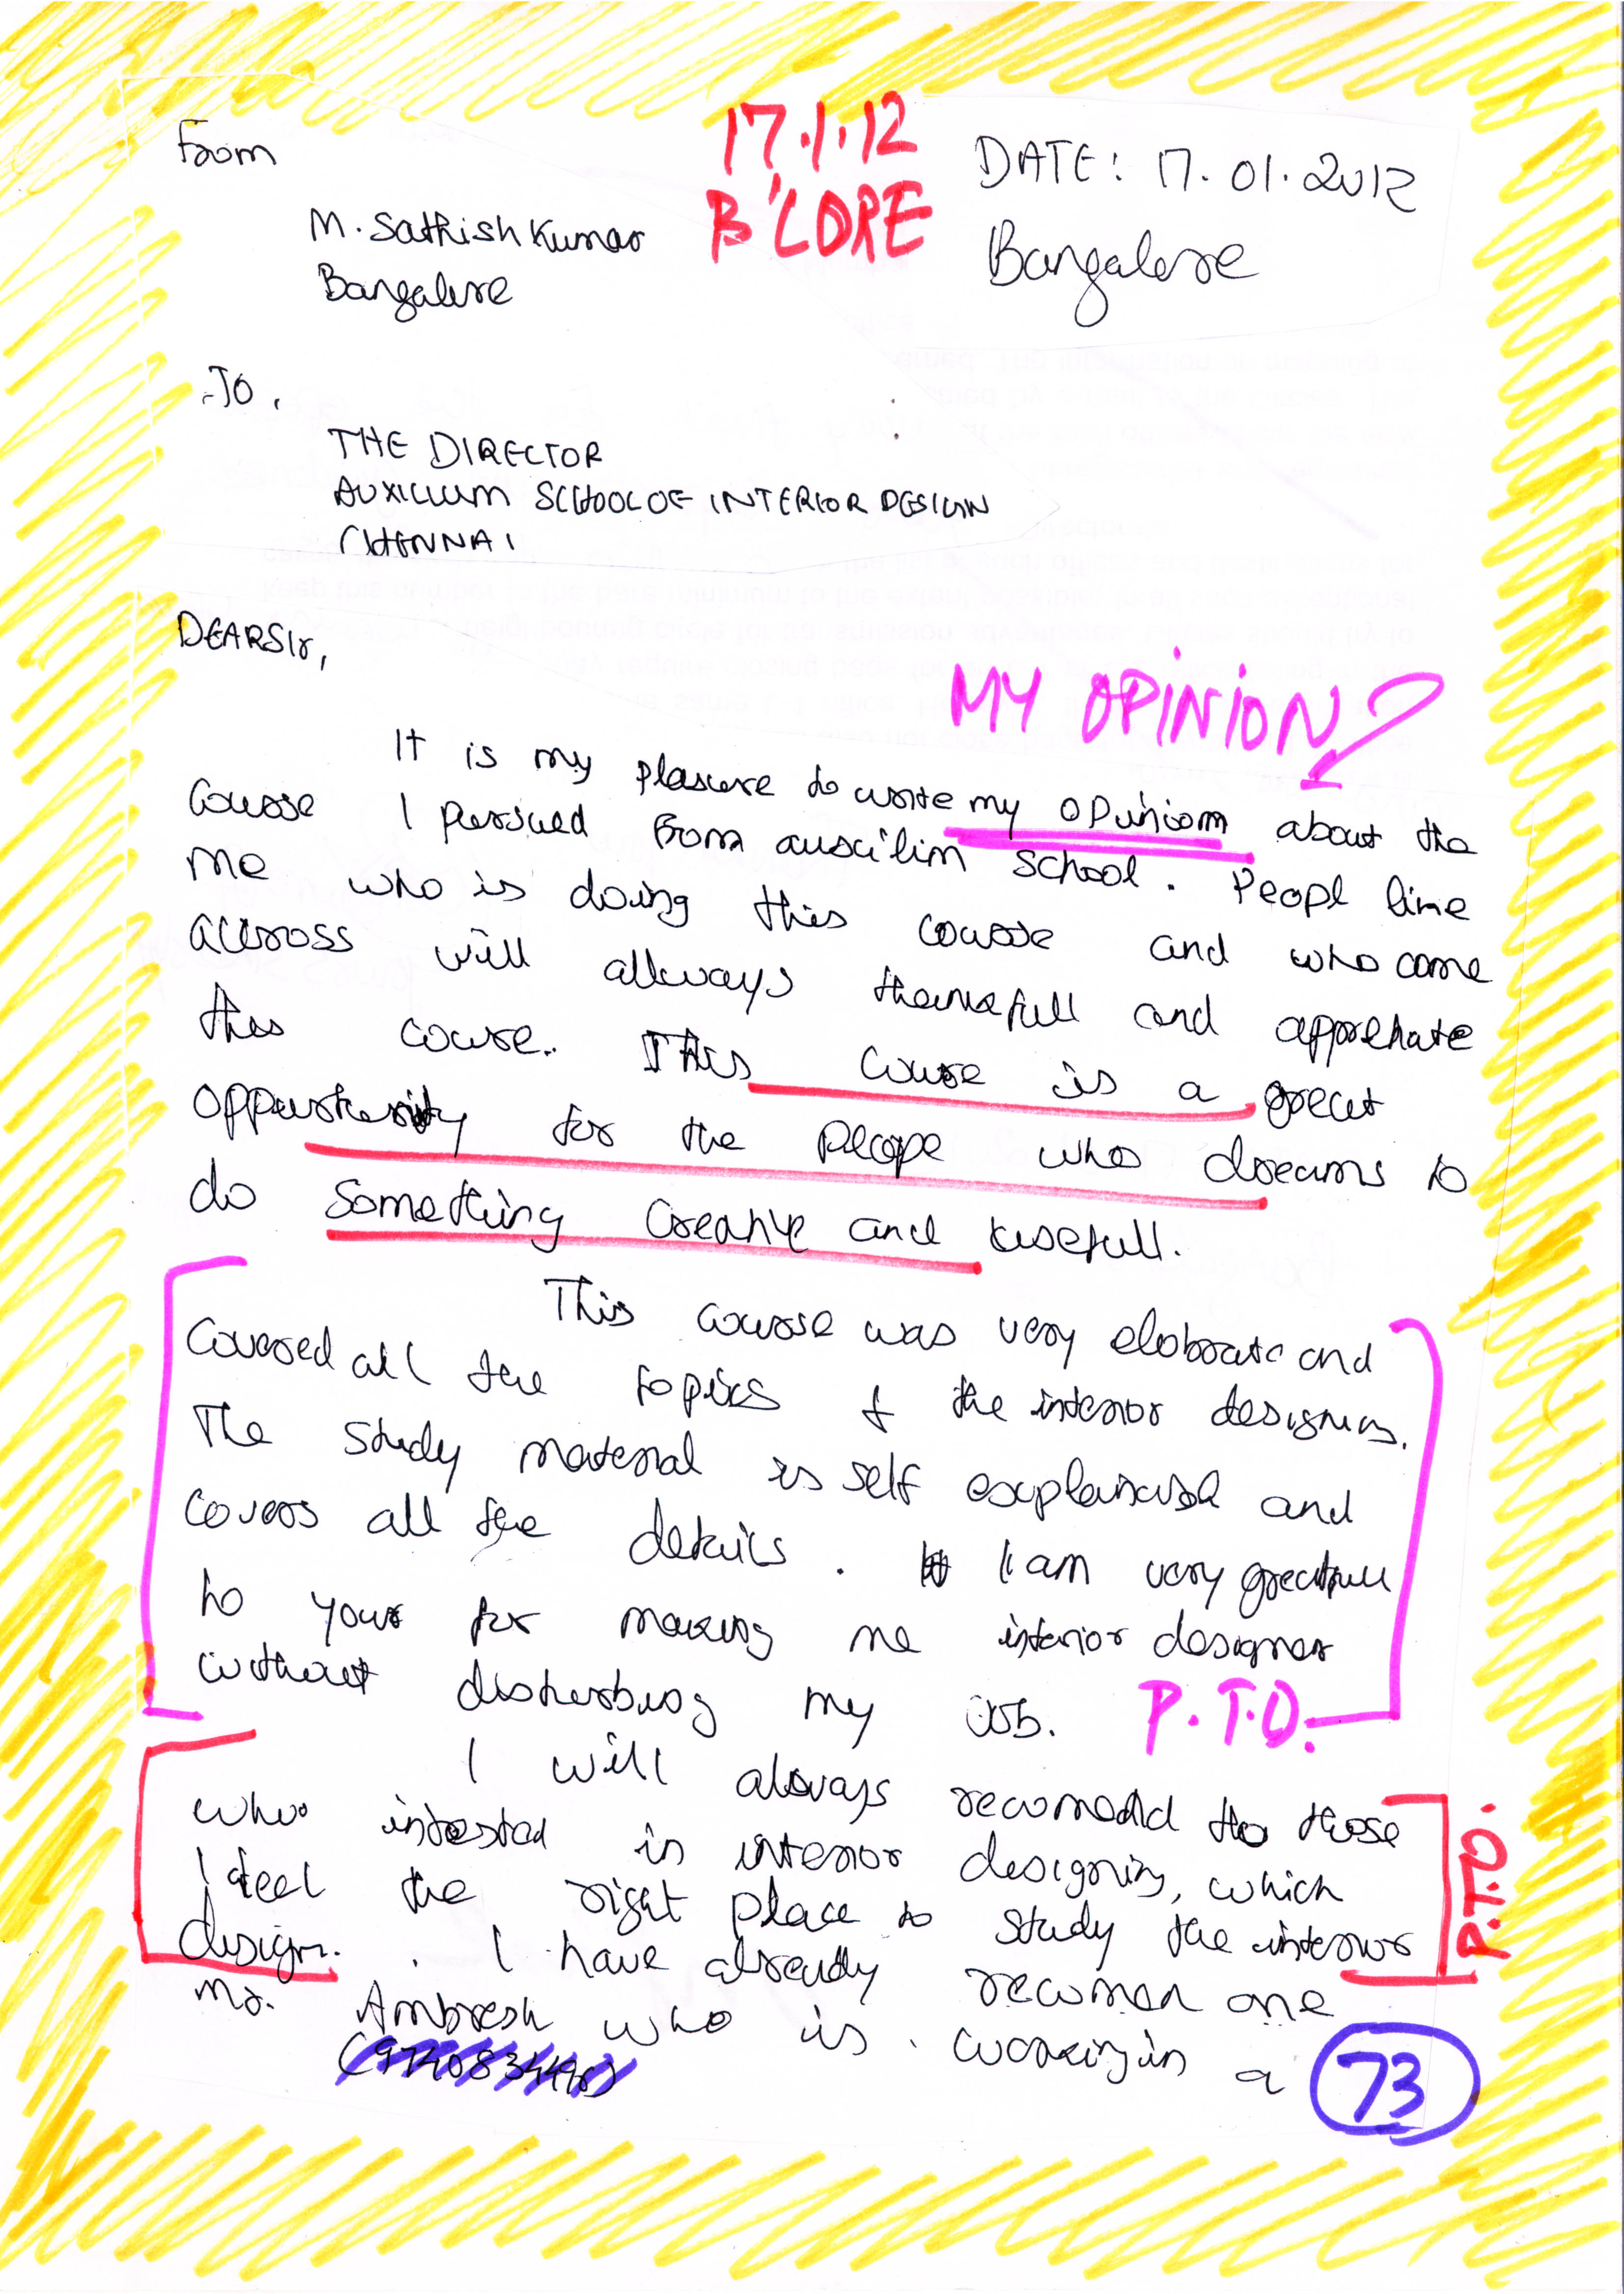 From
17.1.12
B'LORE
DATE: 17.01.2012
Bangalore
M. Sathish Kumar
Bangalore
To,
THE DIRECTOR
AUXILLUM SCHOOL OF INTERIOR DESIGN
CHENNAI
DEAR Sir,
MY OPINION
It is my plasure to write my opuniom about the
course I persued from auxcilim school. Peopl like
me who is doing this course and who come
accross will allways thankfull and apprehate
this course. This course is a great
oppurtunity for the peope who dreams to
do something creative and usefull.
This course was very elobrate and
covered all the topics & the interior designing.
The study material is self explanatory and
covers all the details. I am very greatfull
to your for making me interior designer
without disturbing my job. P.T.O.
I will always recomedd tho those
who intested in interior designing, which
I feel the right place to study the interior
design. I have already recomen one
P.T.O.
Mr. Ambresh who is working in a
73